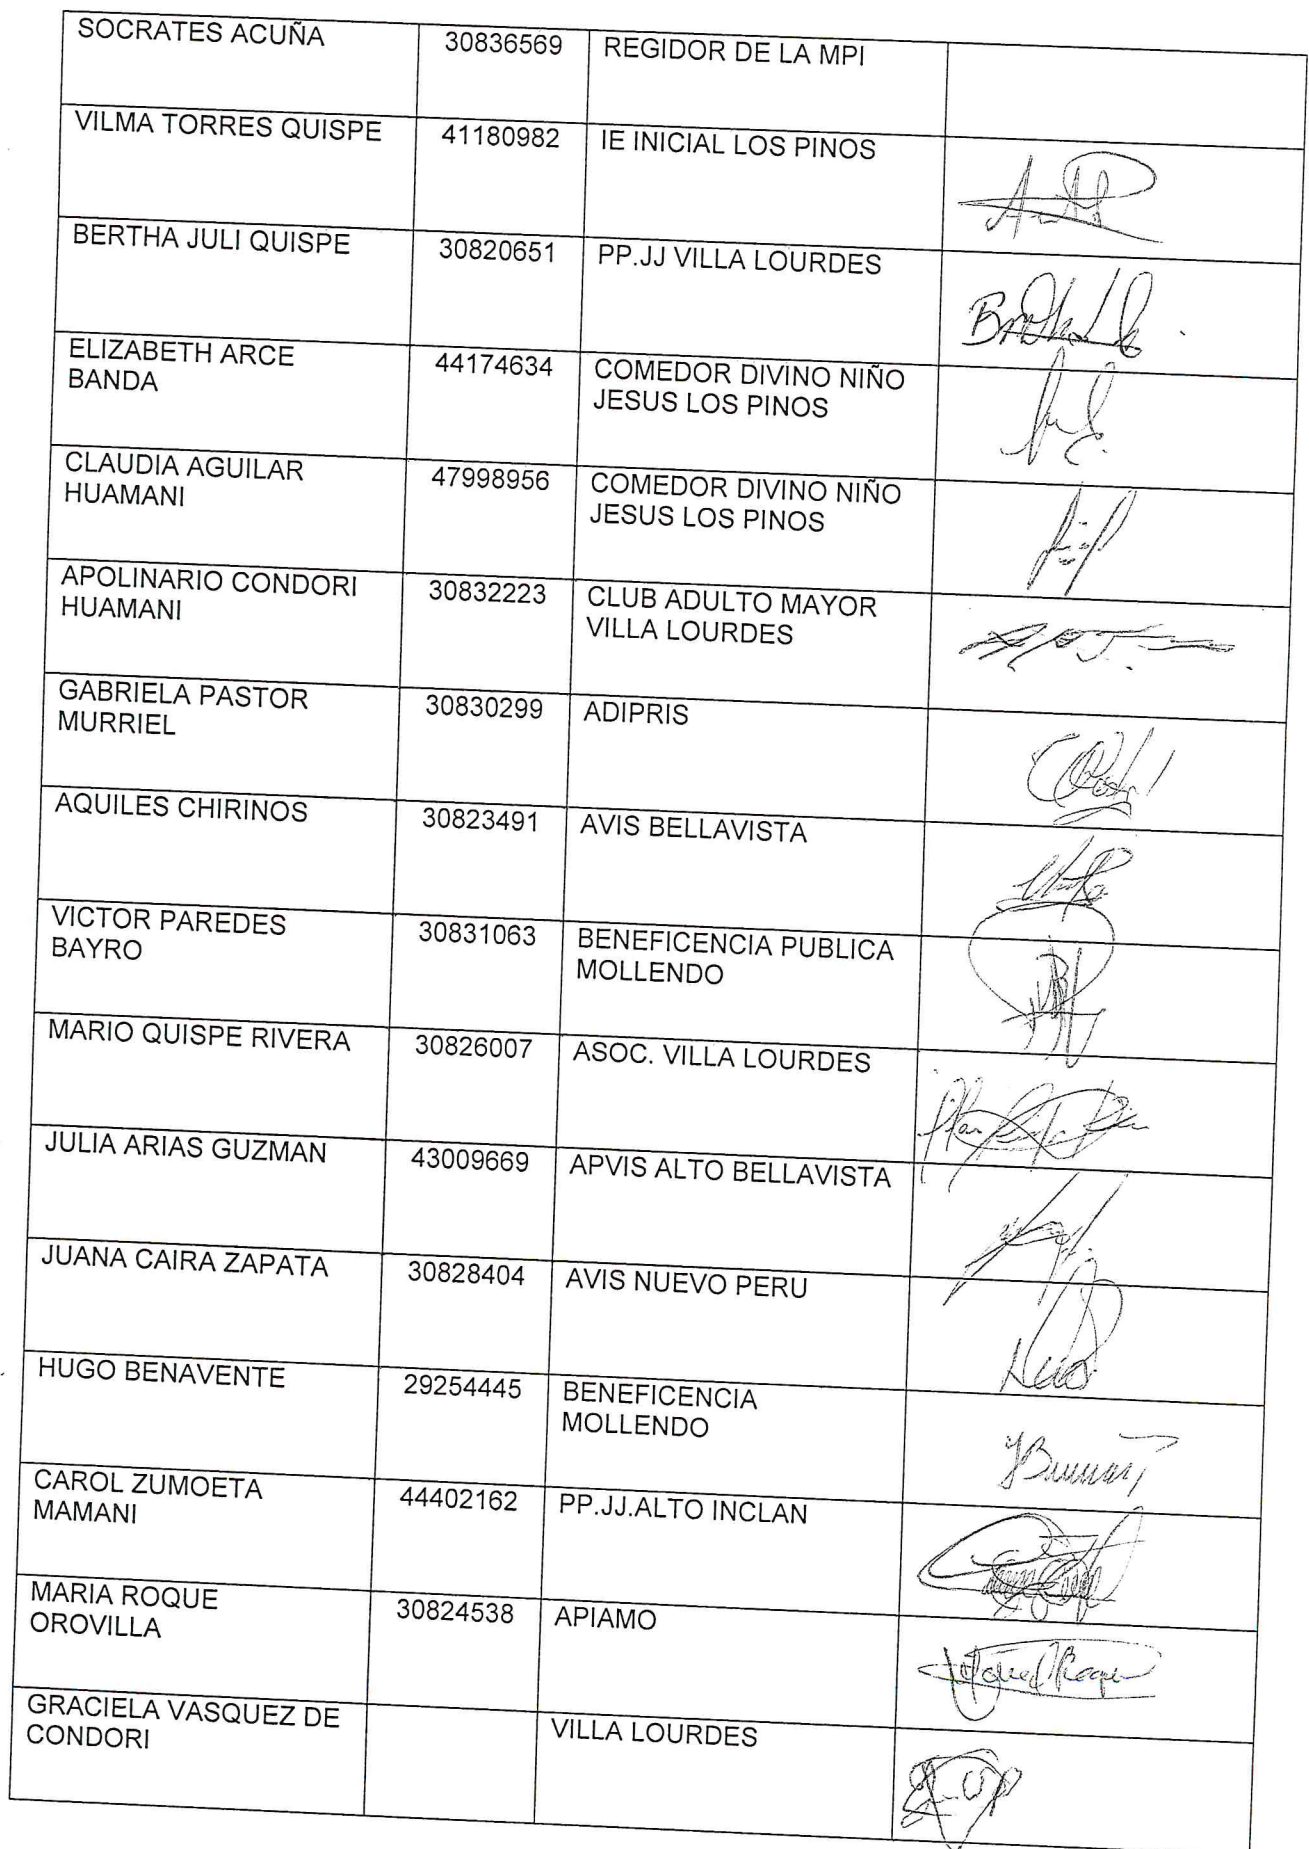 SOCRATES ACUÑA 30836569 REGIDOR DE LA MPI
VILMA TORRES QUISPE 41180982 IE INICIAL LOS PINOS
BERTHA JULI QUISPE 30820651 PP.JJ VILLA LOURDES
ELIZABETH ARCE 44174634 COMEDOR DIVINO NIÑO
BANDA JESUS LOS PINOS
CLAUDIA AGUILAR 47998956 COMEDOR DIVINO NIÑO
HUAMANI JESUS LOS PINOS
APOLINARIO CONDORI 30832223 CLUB ADULTO MAYOR
HUAMANI VILLA LOURDES
GABRIELA PASTOR 30830299 ADIPRIS
MURRIEL
AQUILES CHIRINOS 30823491 AVIS BELLAVISTA
VICTOR PAREDES 30831063 BENEFICENCIA PUBLICA
BAYRO MOLLENDO
MARIO QUISPE RIVERA 30826007 ASOC. VILLA LOURDES
JULIA ARIAS GUZMAN 43009669 APVIS ALTO BELLAVISTA
JUANA CAIRA ZAPATA 30828404 AVIS NUEVO PERU
HUGO BENAVENTE 29254445 BENEFICENCIA
MOLLENDO
CAROL ZUMOETA 44402162 PP.JJ.ALTO INCLAN
MAMANI
MARIA ROQUE 30824538 APIAMO
OROVILLA
GRACIELA VASQUEZ DE VILLA LOURDES
CONDORI